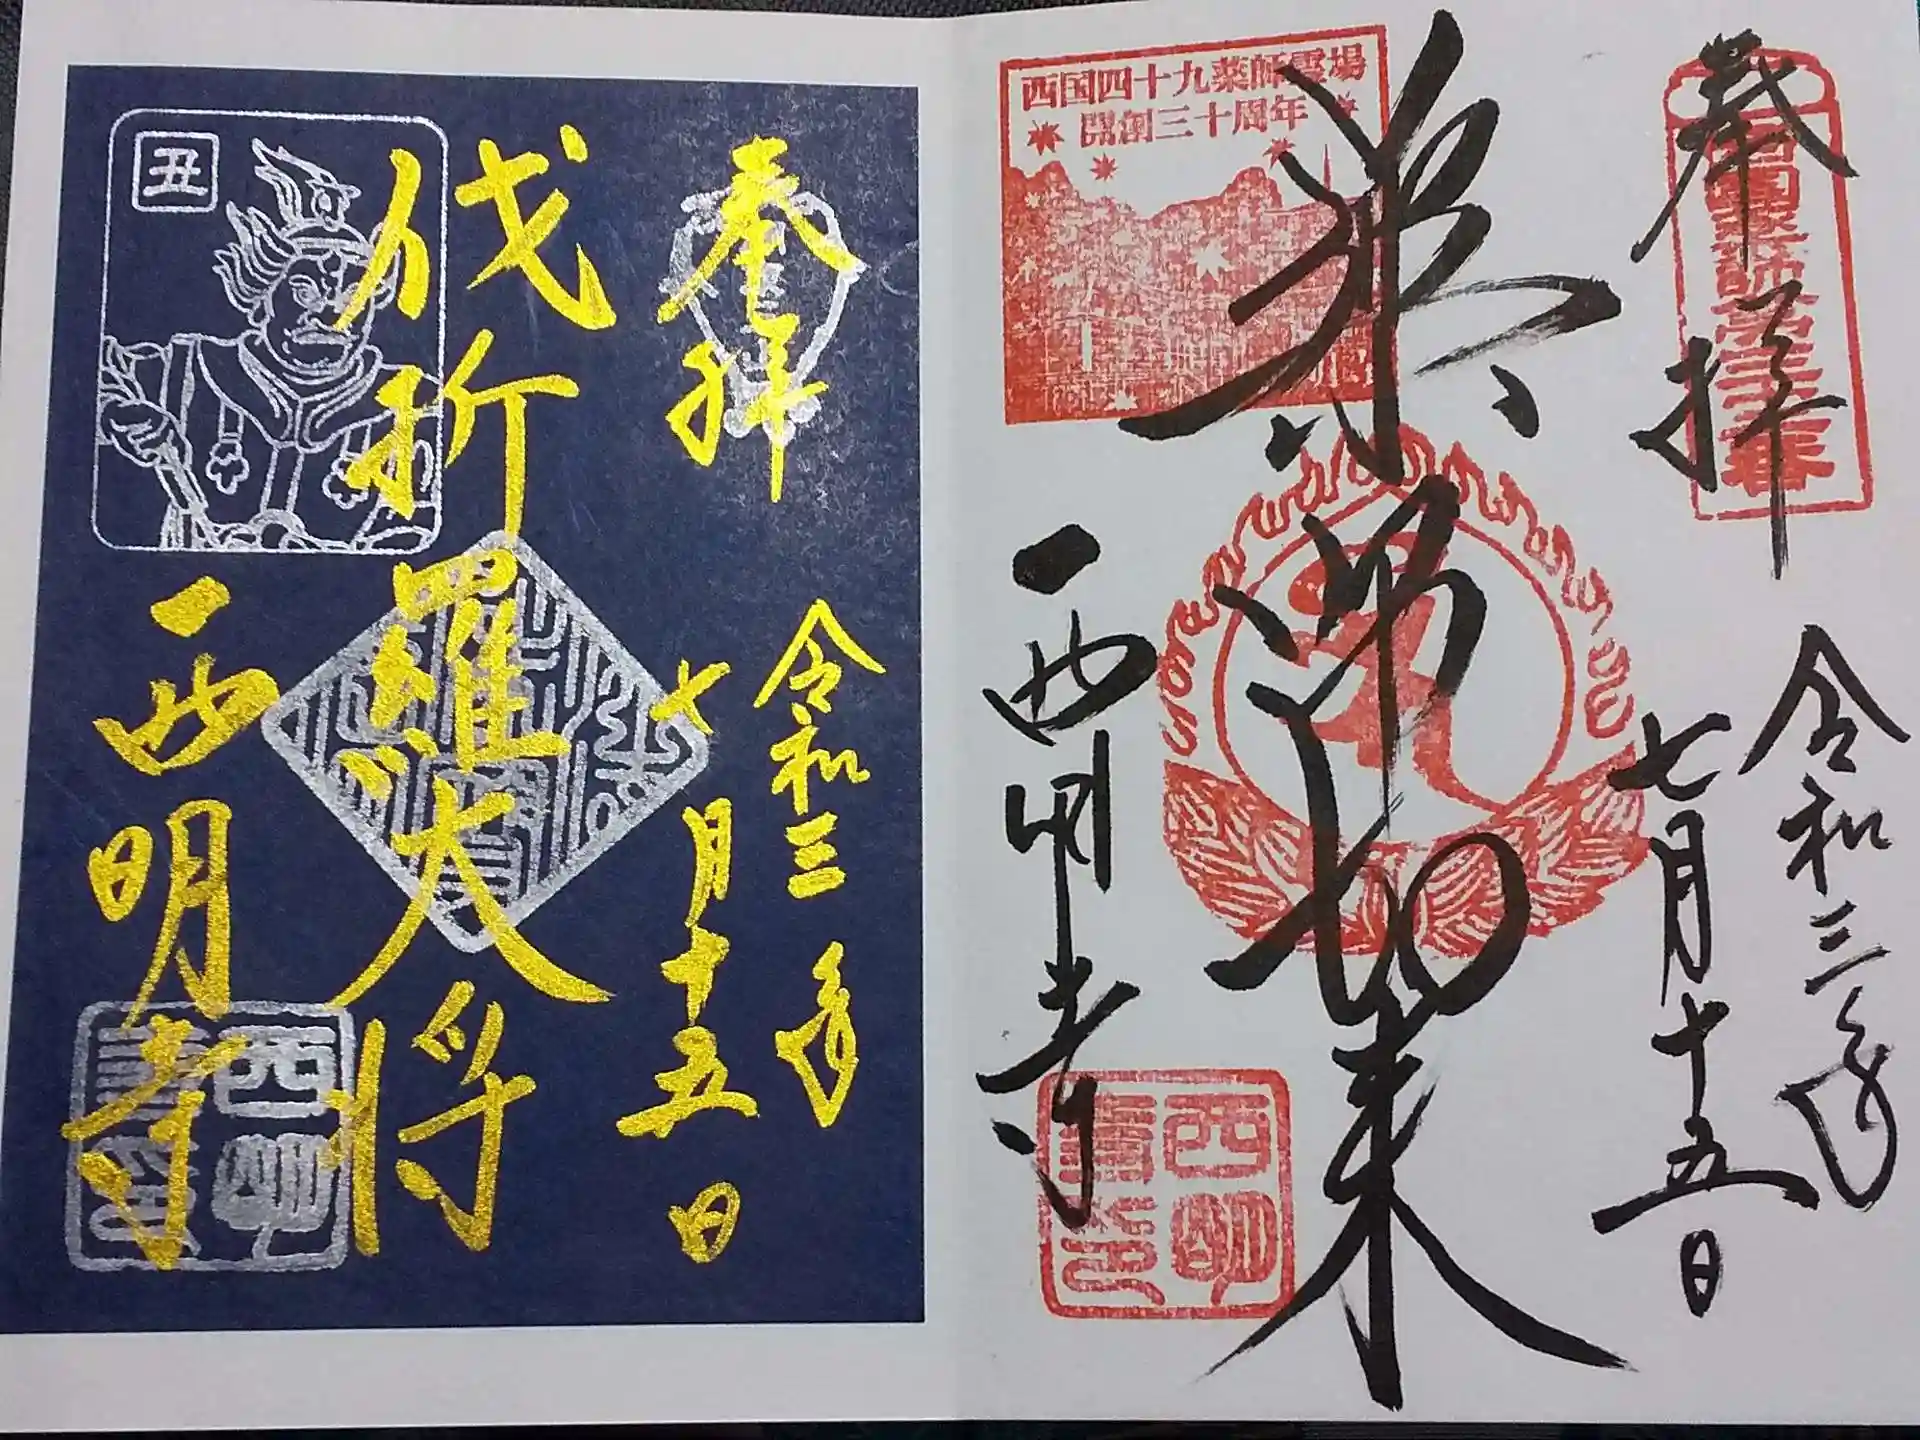 奉拝
西国薬師第三十番
令和三年
七月十五日
西国四十九薬師霊場
開創三十周年
薬師如来
西明寺
奉拝
令和三年
七月十五日
丑
伐折羅大将
西明寺